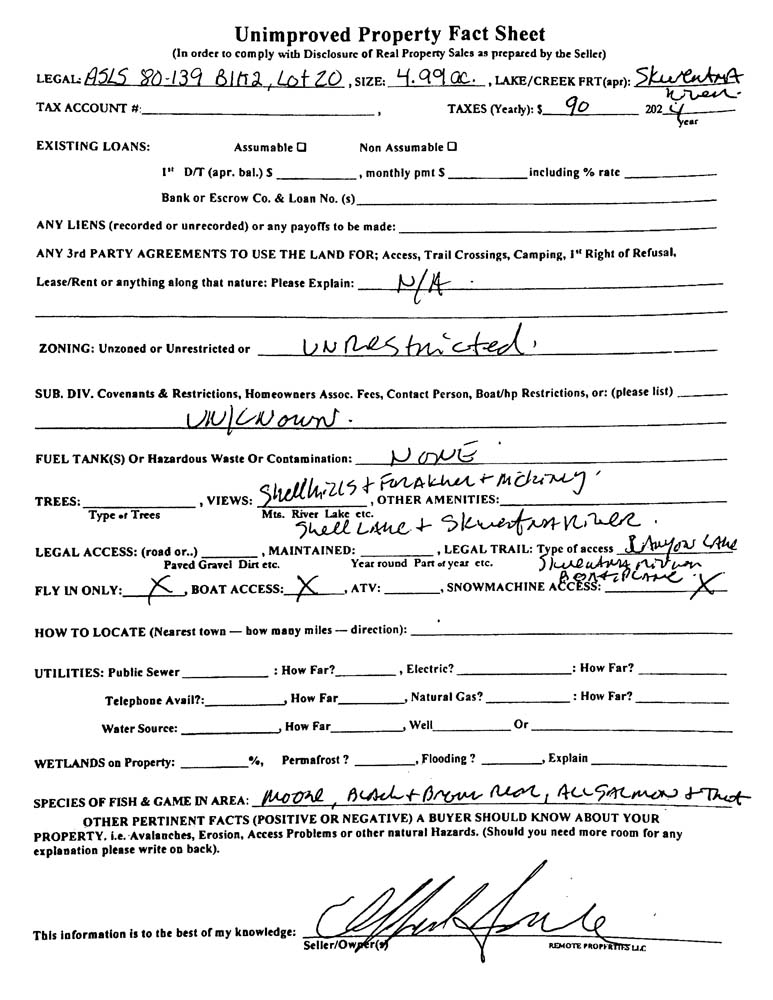 Unimproved Property Fact Sheet
(In order to comply with Disclosure of Real Property Sales as prepared by the Seller)
LEGAL: ASLS 80-139 Blk2, Lot 20, SIZE: 4.99 ac., LAKE/CREEK FRT(apr): Skwentna
River.
TAX ACCOUNT #:____, TAXES (Yearly): $ 90 2024
year
EXISTING LOANS: Assumable ☐ Non Assumable ☐
1st D/T (apr. bal.) $ ____, monthly pmt $ ____ including % rate ____
Bank or Escrow Co. & Loan No. (s)____
ANY LIENS (recorded or unrecorded) or any payoffs to be made: ____
ANY 3rd PARTY AGREEMENTS TO USE THE LAND FOR; Access, Trail Crossings, Camping, 1st Right of Refusal,
Lease/Rent or anything along that nature: Please Explain: N/A
ZONING: Unzoned or Unrestricted or UNRestricted.
SUB. DIV. Covenants & Restrictions, Homeowners Assoc. Fees, Contact Person, Boat/hp Restrictions, or: (please list) ____
UNKNown.
FUEL TANK(S) Or Hazardous Waste Or Contamination: NONE
TREES: ____, VIEWS: Shell hills + Forakher + Mckiney, OTHER AMENITIES: ____
Type of Trees Mts. River Lake etc.
Shell LAKE + Skwentna River.
LEGAL ACCESS: (road or..) ____, MAINTAINED: ____, LEGAL TRAIL: Type of access LAKE
Paved Gravel Dirt etc. Year round Part of year etc. Skwentna River
BOAT + PLANE
FLY IN ONLY: X, BOAT ACCESS: X, ATV: ____, SNOWMACHINE ACCESS: X
HOW TO LOCATE (Nearest town — how many miles — direction): ____
UTILITIES: Public Sewer ____ : How Far? ____, Electric? ____ : How Far? ____
Telephone Avail?: ____, How Far ____, Natural Gas? ____ : How Far? ____
Water Source: ____, How Far ____, Well ____ Or ____
WETLANDS on Property: ____ %, Permafrost ? ____, Flooding ? ____, Explain ____
SPECIES OF FISH & GAME IN AREA: Moose, Black + Brown Bear, ALL SALMON + Trout
OTHER PERTINENT FACTS (POSITIVE OR NEGATIVE) A BUYER SHOULD KNOW ABOUT YOUR
PROPERTY. i.e. Avalanches, Erosion, Access Problems or other natural Hazards. (Should you need more room for any
explanation please write on back).
This information is to the best of my knowledge:
Seller/Owner(s) REMOTE PROPERTIES LLC